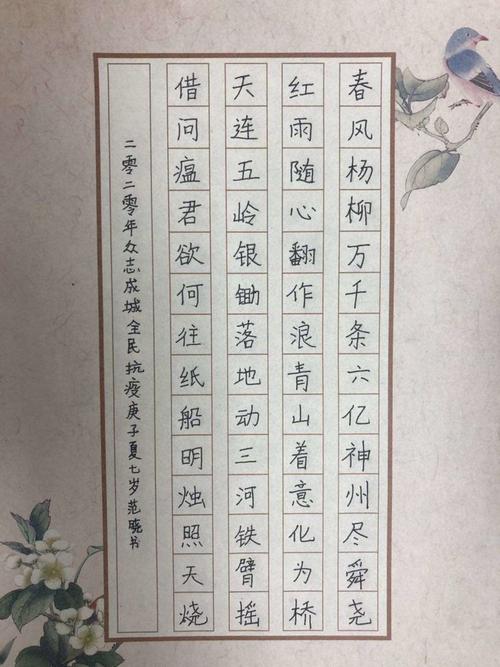 春风杨柳万千条六亿神州尽舜尧
红雨随心翻作浪青山着意化为桥
天连五岭银锄落地动三河铁臂摇
借问瘟君欲何往纸船明烛照天烧
二零二零年众志成城全民抗疫庚子夏七岁范晓书